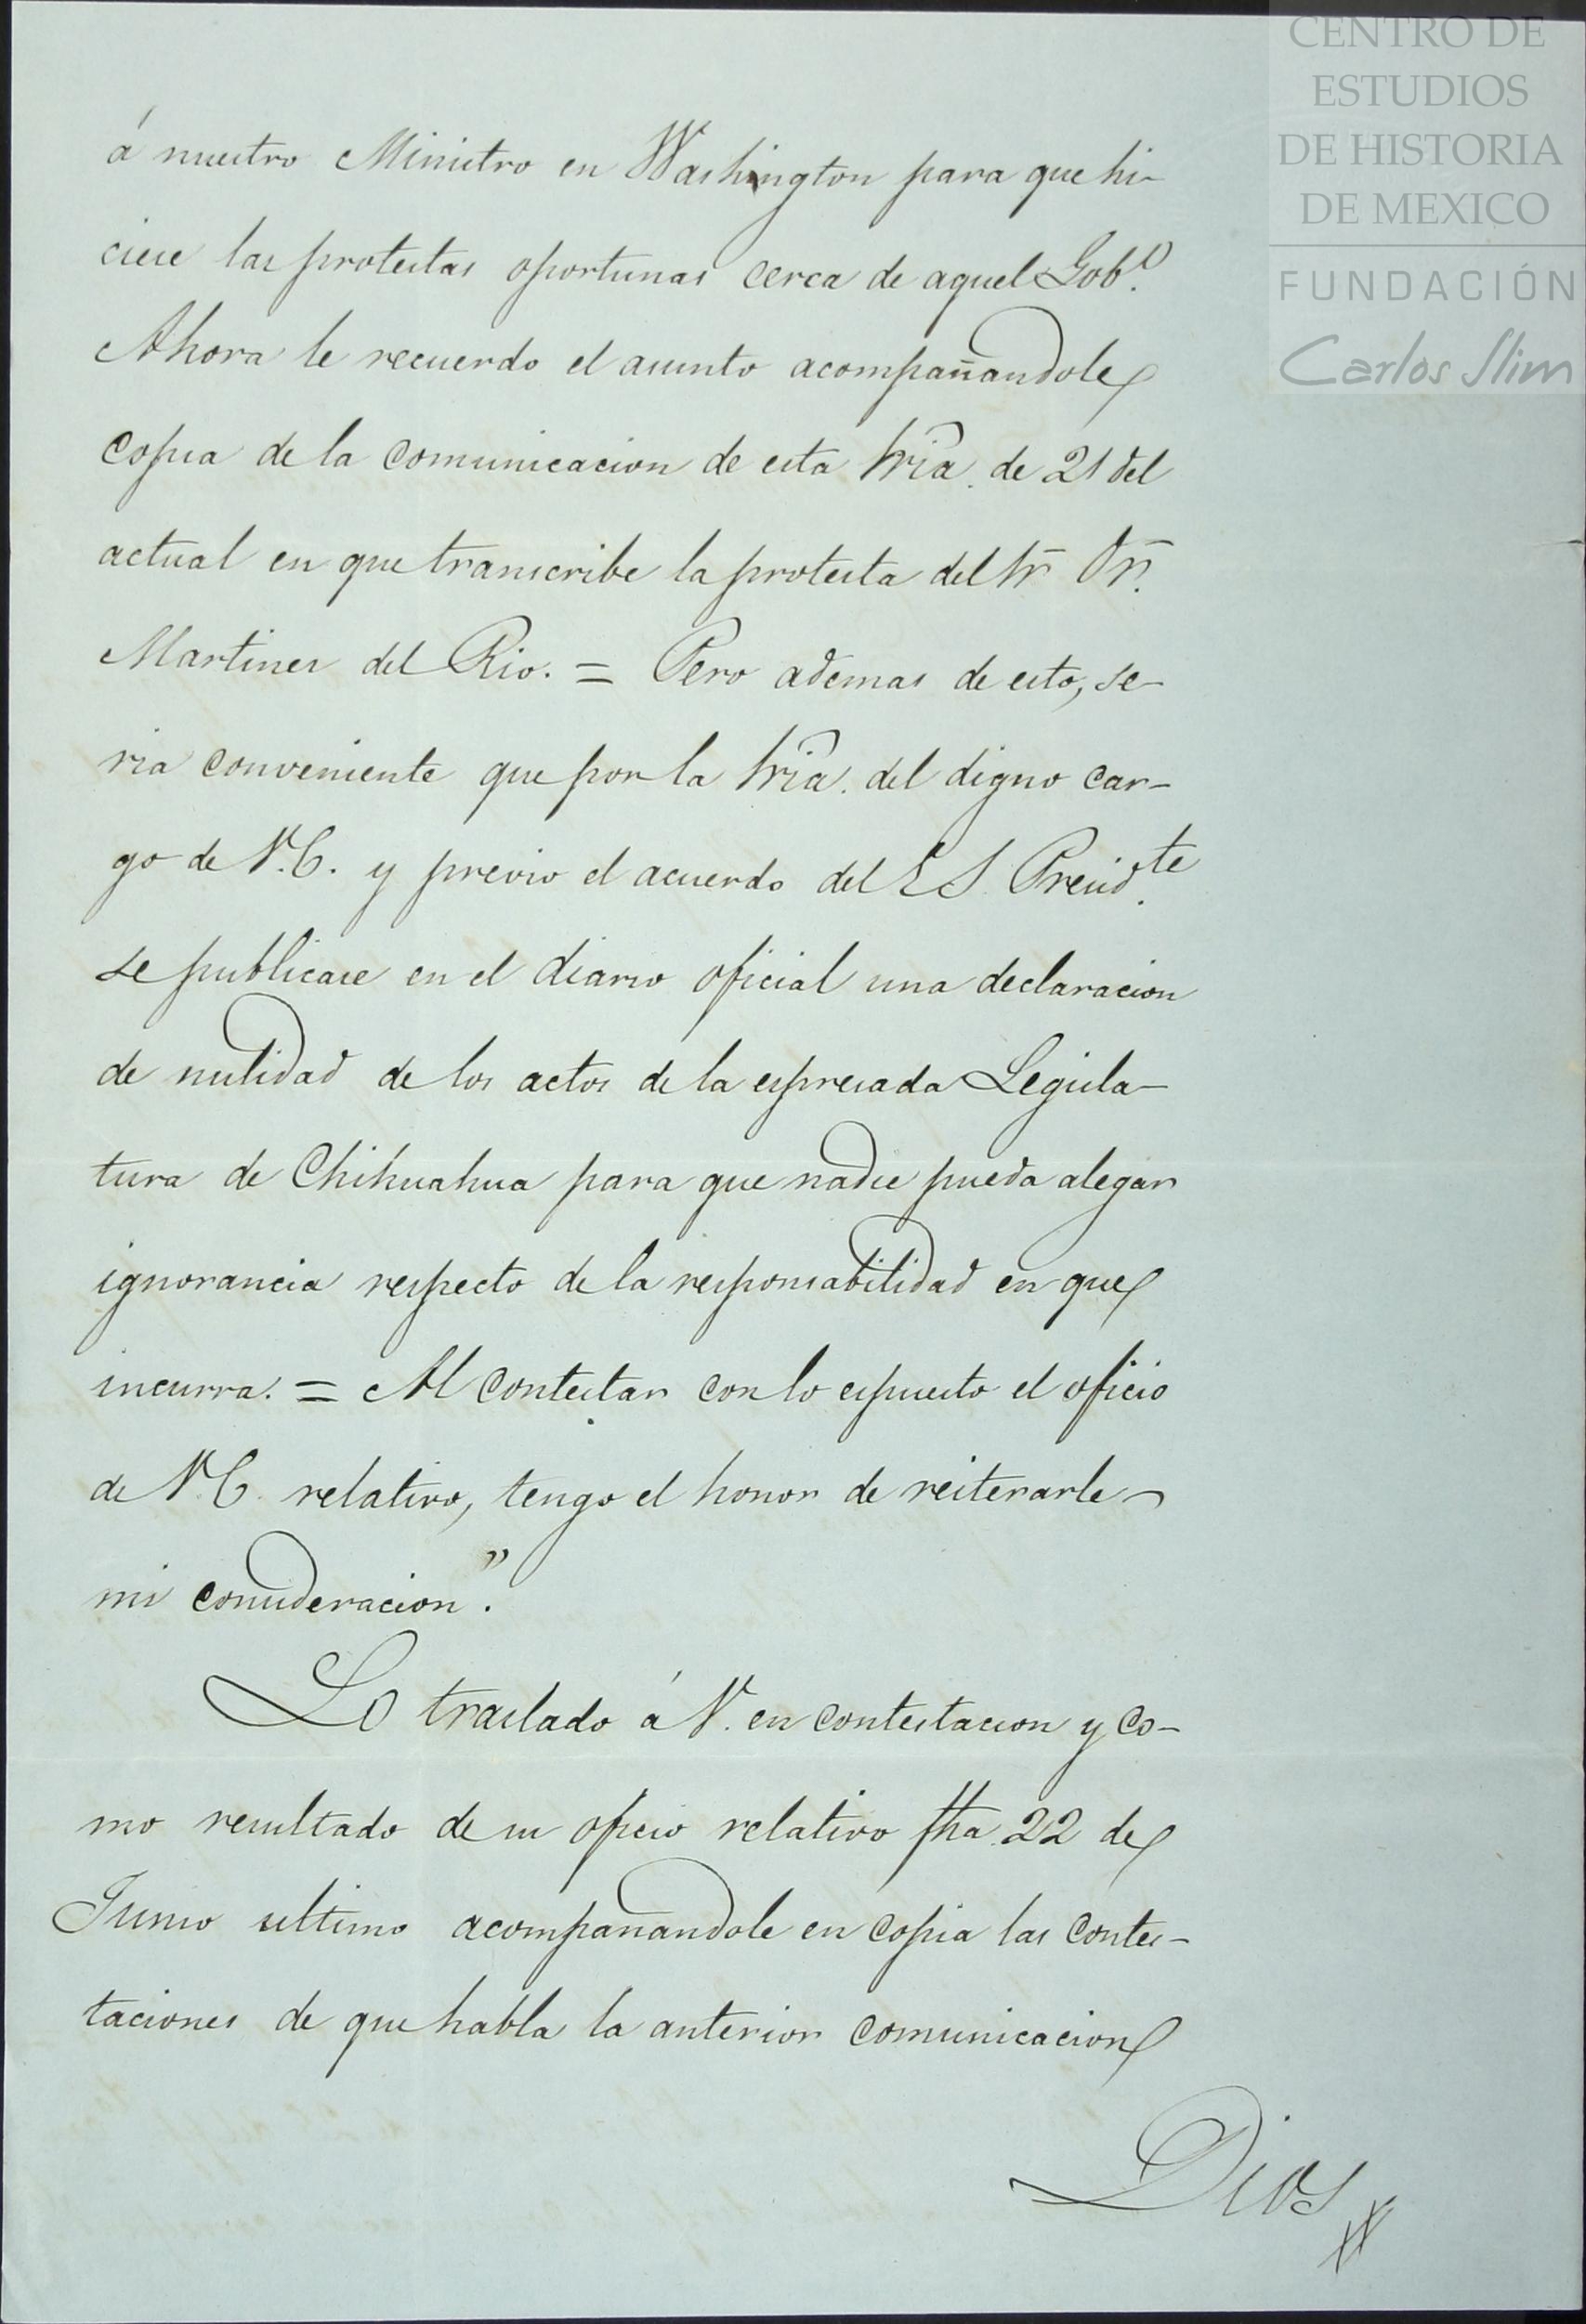 CENTRO DE
ESTUDIOS
DE HISTORIA
DE MEXICO
FUNDACIÓN
Carlos Slim
á nuestro Ministro en Washington para que hi-
ciese las protestas oportunas cerca de aquel Gob.º
Ahora le recuerdo el asunto acompañandole
copia de la comunicacion de esta Sria. de 21 del
actual en que transcribe la protesta del Sr Dr.
Martines del Rio. = Pero ademas de esto, se-
ria conveniente que por la Sria. del digno car-
go de V.E. y previo el acuerdo del E S Presid.te
se publicase en el diario oficial una declaracion
de nulidad de los actos de la espresada Legisla-
tura de Chihuahua para que nadie pueda alegar
ignorancia respecto de la responsabilidad en que
incurra. = Al contestar con lo espuesto el oficio
de V.E. relativo, tengo el honor de reiterarle
mi consideracion".
Lo traslado á V. en contestacion y co-
mo resultado de su oficio relativo fha 22 de
Junio ultimo acompañandole en copia las contes-
taciones de que habla la anterior comunicacion
Dios